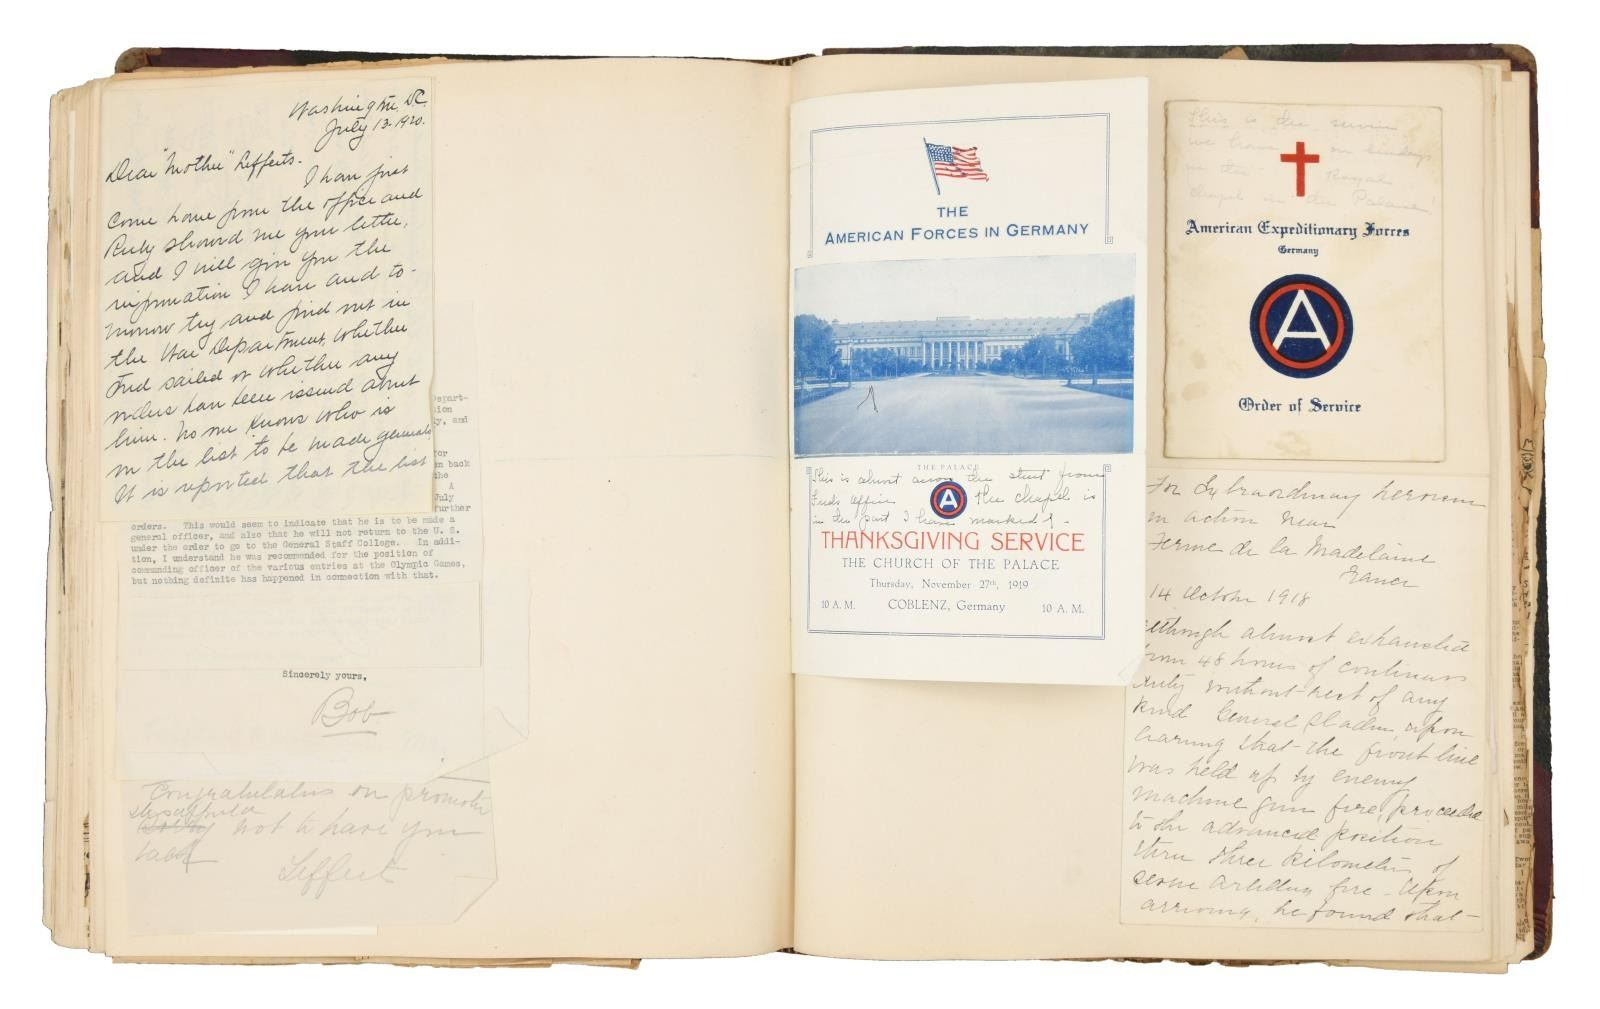 Washington, D.C.
July 13-1920.
Dear "Mother" Lefferts.
I have just
come home from the office and
Ruby showed me your letter,
and I will give you the
information I have and to-
morrow try and find out in
the War Department, whether
Fred sailed or whether any
orders have been issued about
him. No one knows who is
on the list to be made generals
It is reported that the list
Depart-
ion
y, and
for
en back
the
A
July
further
orders. This would seem to indicate that he is to be made a
general officer, and also that he will not return to the U. S.
under the order to go to the General Staff College. In addi-
tion, I understand he was recommended for the position of
commanding officer of the various entries at the Olympic Games,
but nothing definite has happened in connection with that.
Sincerely yours,
Bob
Congratulations on promotion
not to have you
back
Leffert
THE
AMERICAN FORCES IN GERMANY
THE PALACE
This is almost across the street from
Freds office the chapel is
in the part I have marked
A
THANKSGIVING SERVICE
THE CHURCH OF THE PALACE
Thursday, November 27th, 1919
10 A. M. COBLENZ, Germany 10 A. M.
This is the service
we have on Sundays
in the Royal
chapel in the Palace!
American Expeditionary Forces
Germany
A
Order of Service
For Extraordinary heroism
in action near
Ferme de la Madelaine
France
14 October 1918
Although almost exhausted
from 48 hours of continuous
duty without rest of any
kind General Sladen, upon
learning that the front line
was held up by enemy
machine gun fire, proceeded
to the advanced position
thru three kilometers of
severe artillery fire - Upon
arriving, he found that